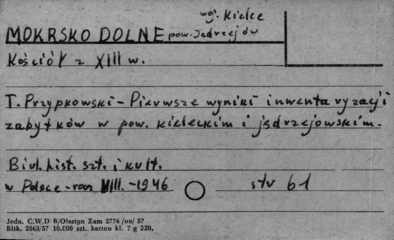 woj. Kielce
MOKRSKO DOLNE pow. Jędrzejów
Kościół z XIII w.
T. Przypkowski - Pierwsze wyniki inwentaryzacji
zabytków w pow. kieleckim i jędrzejowskim.
Biul. hist. szt. i kult.
w Polsce - rocz VIII. - 1946 str 61
Jedn. C.W.D 8/Olsztyn Zam 2776/on/57
Bltk. 2563/57 10.000 szt. karton kl. 7 g 220.